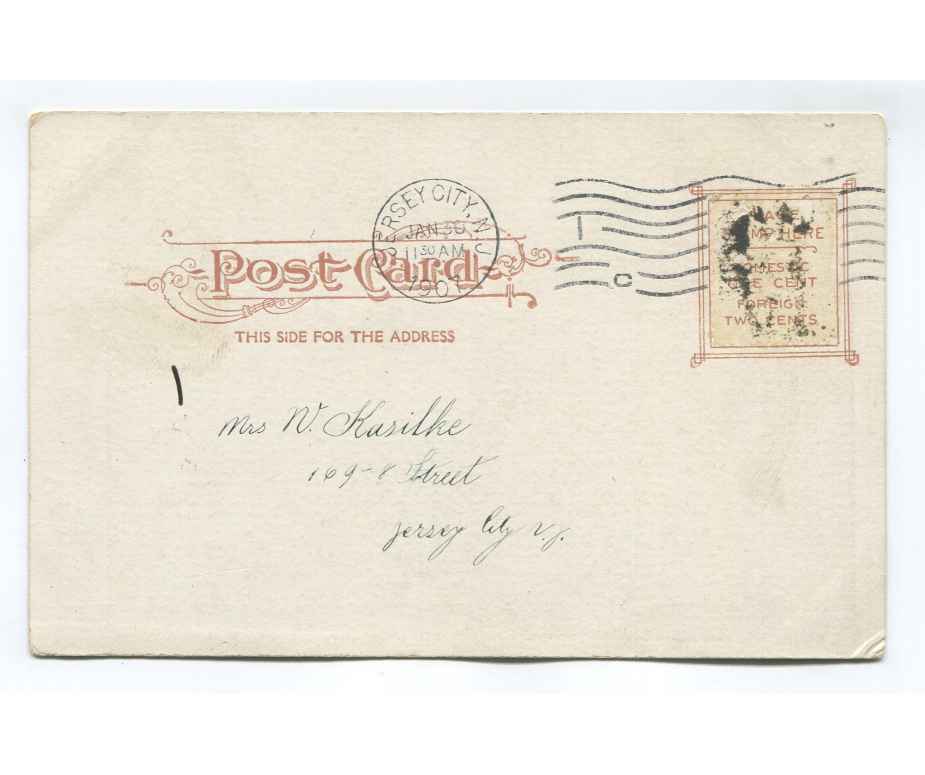 JERSEY CITY, N.J.
JAN 30
11 30 AM
1907
1
C
Post Card
THIS SIDE FOR THE ADDRESS
HERE
ONE CENT
FOREIGN
TWO CENTS
Mrs W. Kasilke
169-8 Street
Jersey City N.J.